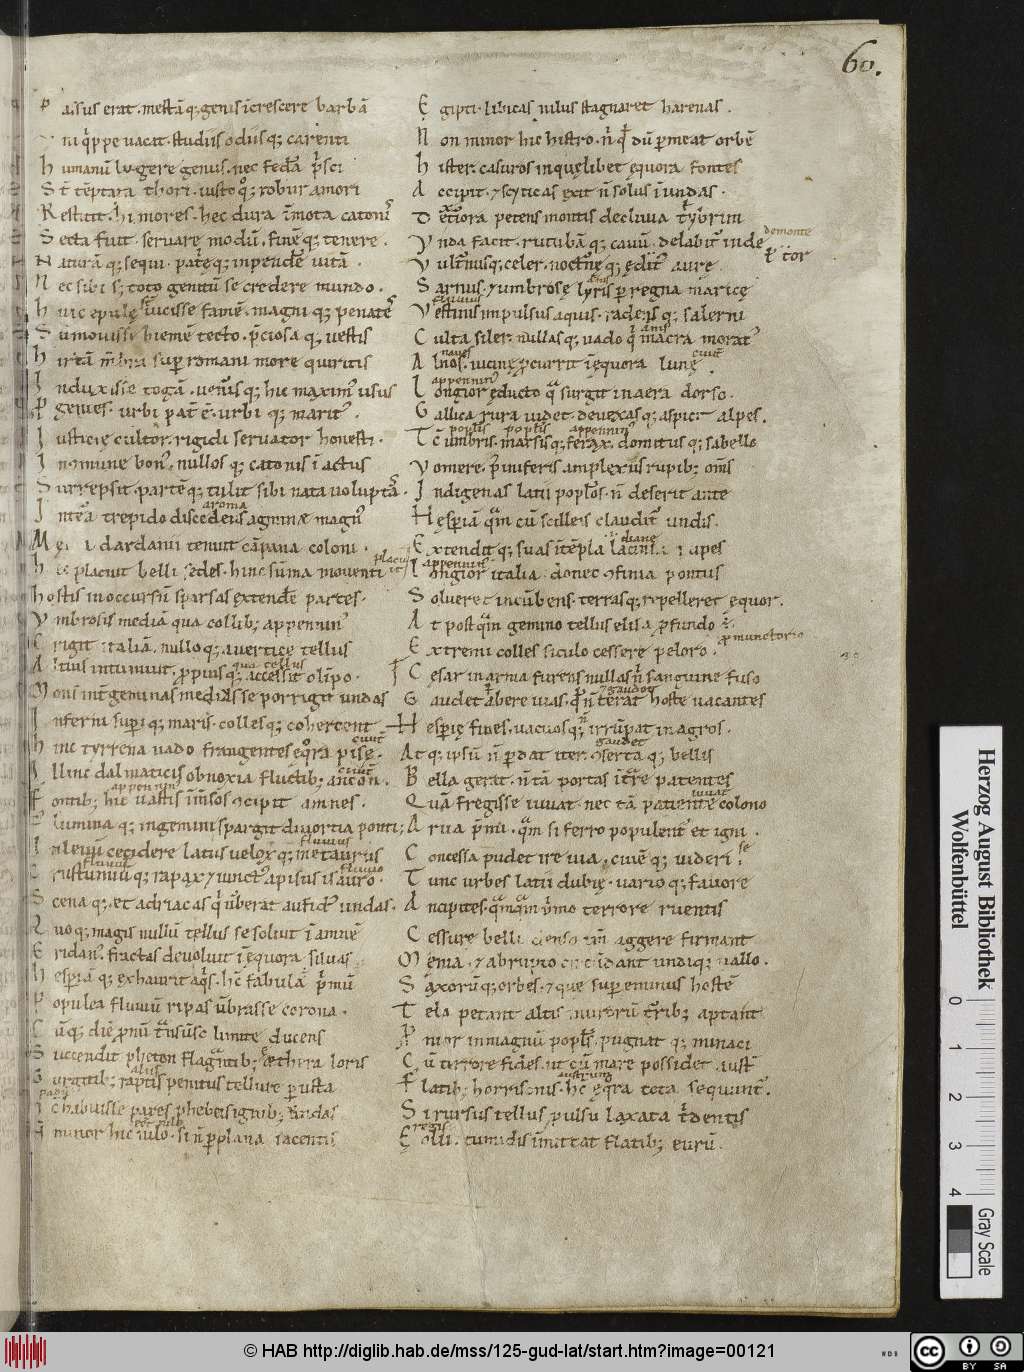 60.
P assus erat. mestā q; genis īcrescere barbā
V ni q̄ppe vacat. studiis odiisq; carenti
H umanū lugere genus. nec fedā p̄sci
S t̄ tēptata thori. iusto q; robur amori
R estitit. hi mores. hec dura īmota catonis
S ecta fuit. servare modū. finē q; tenere.
N aturā q; sequi. patrięq; inpendere vitā.
N ec sibi s; toto genitū se credere mundo.
h uic epulę vicisse famē. magni q; penates
S ūmovisse hiemē tecto. p̄ciosa q; vestis
h irtā mēbra super romani more quiritis
I nduxisse togā. venerisq; hic maximus usus
P genies. urbi pater ē. urbi q; maritus.
I usticię cultor. rigidi servator honesti.
I n cōmune bonus. nullosq; catonis ī actus
S urrepsit. partēq; tulit sibi nata voluptas.
aroma
I nterea trepido discedens agmine magnus
M enia dardanii tenuit cāpana coloni.
h ec placuit belli sedes. hinc sūma moventi
placuit
hostis in occursū sparsas extendere partes.
V mbrosis mediā qua collib; appenninus
E rigit italiā. nullo q; a vertice tellus
qua tellus
A ltius intumuit. propius q; accessit olimpo.
M ons inter geminas medius se porrigit undas
I nferni superi q; maris. colles q; cohercent
civitas
h inc tyrrena vado frangentes equora pisę.
civitas
I llinc dalmaticis obnoxia fluctib; ancon.
appenninus
F ontib; hic vastis īmēsos cōcipit amnes.
F lumina q; in gemini spargit divortia ponti;
fluvius
I n levū cecidere latus velox q; metaurus
fluvius
fluvio
C rustumiū q; rapax & iunctus sapis isauro.
S ena q; et adriacas qui verberat aufidus undas.
Q uo q; magis nullū tellus se solvit ī amnē
E ridanus. fractas devolvit ī equora silvas
h esperiā q; exhaurit aquis. hc̄ fabula primū
P opulea fluviū ripas ūbrasse corona.
C ūq; diē pronū transverso limite ducens
S uccendit pheton flagrantib; ęthera loris
G urgitib; raptis penitus tellure perusta
H c habuisse pares phebeis ignib; undas
N minor hic nilo. si n̄ per plana iacentis
E gipti. libicas nilus stagnaret harenas.
N on minor hic histro. n̄ quod dū permeat orbē
h ister. casuros in quęlibet equora fontes
A ccipit. & scyticas exit n̄ solus ī undas.
D exteriora petens montis declivia tybrim
V nda facit. rutubā q; cavū. delabitur inde
de monte
V ulturnusq; celer. nocturnęq; editor aure
S arnus. & umbrosę lyris per regna maricę
fluvius
V estinis impulsus aquis. radensq; salerni
C ulta siler. nullasq; vado qui macra moratus
naves
civitatis
A lnos. vicinę procurrit ī equora lunę
appenninus
L ongior educto qua surgit in aera dorso.
G allica rura videt. devexasq; aspicit alpes.
poplis poplis appenninus
T c̄ umbris. marsisq; ferax. domitusq; sabello
V omere. piniferis amplexus rupib; omnes
I ndigenas latii poplos. n̄ deserit ante
H esperiā quam cū scilleis clauditur undis.
diane
E xtenditq; suas ī tēpla lacinia rupes
appenninus
L ongior italia. donec cōfinia pontus
S olveret incūbens. terrasq; repelleret equor.
A t postquam gemino tellus elisa profundo ē
promunctorio
E xtremi colles siculo cessere peloro.
C esar in arma furens nullas nisi sanguine fuso
gaudet
G audet habere vias. quod n̄ terat hoste vacantes
H esperię fines. vacuosq; irrūpat in agros.
gaudet
A t q; ipsū n̄ perdat iter. cōserta q; bellis
B ella gerat. n̄ tā portas intrare patentes
iuvat
Q uā fregisse iuvat. nec tā patiente colono
A rva premi. quam si ferro populentur et igni.
C oncessa pudet ire via. civē q; videri
se
T unc urbes latii dubię. varioq; favore
A ncipites. quamquam primo terrore ruentis
C essure belli denso tamen aggere firmant
M enia. & abrupto circūdant undiq; vallo.
S axorū q; orbes. & que super eminus hostē
T ela petant altis murorū turrib; aptant
P nior in magnū poplus. pugnat q; minaci
C ū terrore fides. ut cū mare possidet auster
austrum
F latib; horrisonis. hc̄ equora tota sequuntur.
S i rursus tellus pulsu laxata tridentis
regis
E olii. tumidis īmittat flatib; eurū.
Herzog August Bibliothek
Wolfenbüttel
0 1 2 3 4
Gray Scale
© HAB http://diglib.hab.de/mss/125-gud-lat/start.htm?image=00121
WDB
cc BY SA